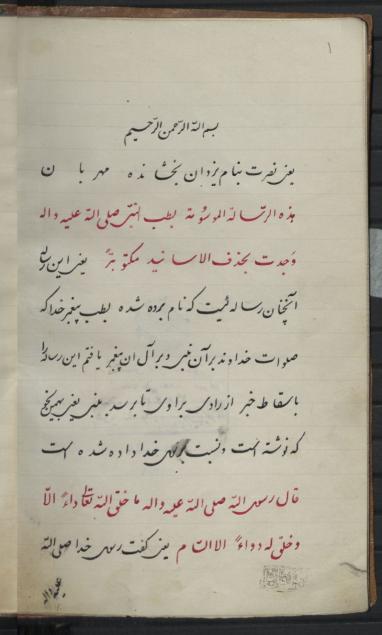 ۱
بسم الله الرحمن الرحیم
یعنی نصرت بنام یزدان بخشاینده مهربان
هذه الرسالة الموسومة بطب النبی صلی الله علیه واله
وجدت بحذف الاسانید مکتوبة یعنی این رساله
آنچنان رساله ئیست که نام برده شده بطب پیغمبر خدا که
صلوات خداوند بر آن نبی و بر آل ان پیغمبر یافتم این رساله را
باسقاط خبر از راوی براوی تا برسد بنبی یعنی بهمین نهج
که نوشته است و نسبت برسول خدا داده شده است
قال رسول الله صلی الله علیه واله ما خلق الله تعالی داءً الّا
وخلق له دواءً الا السام یعنی گفت رسول خدا صلی الله
علیه واله